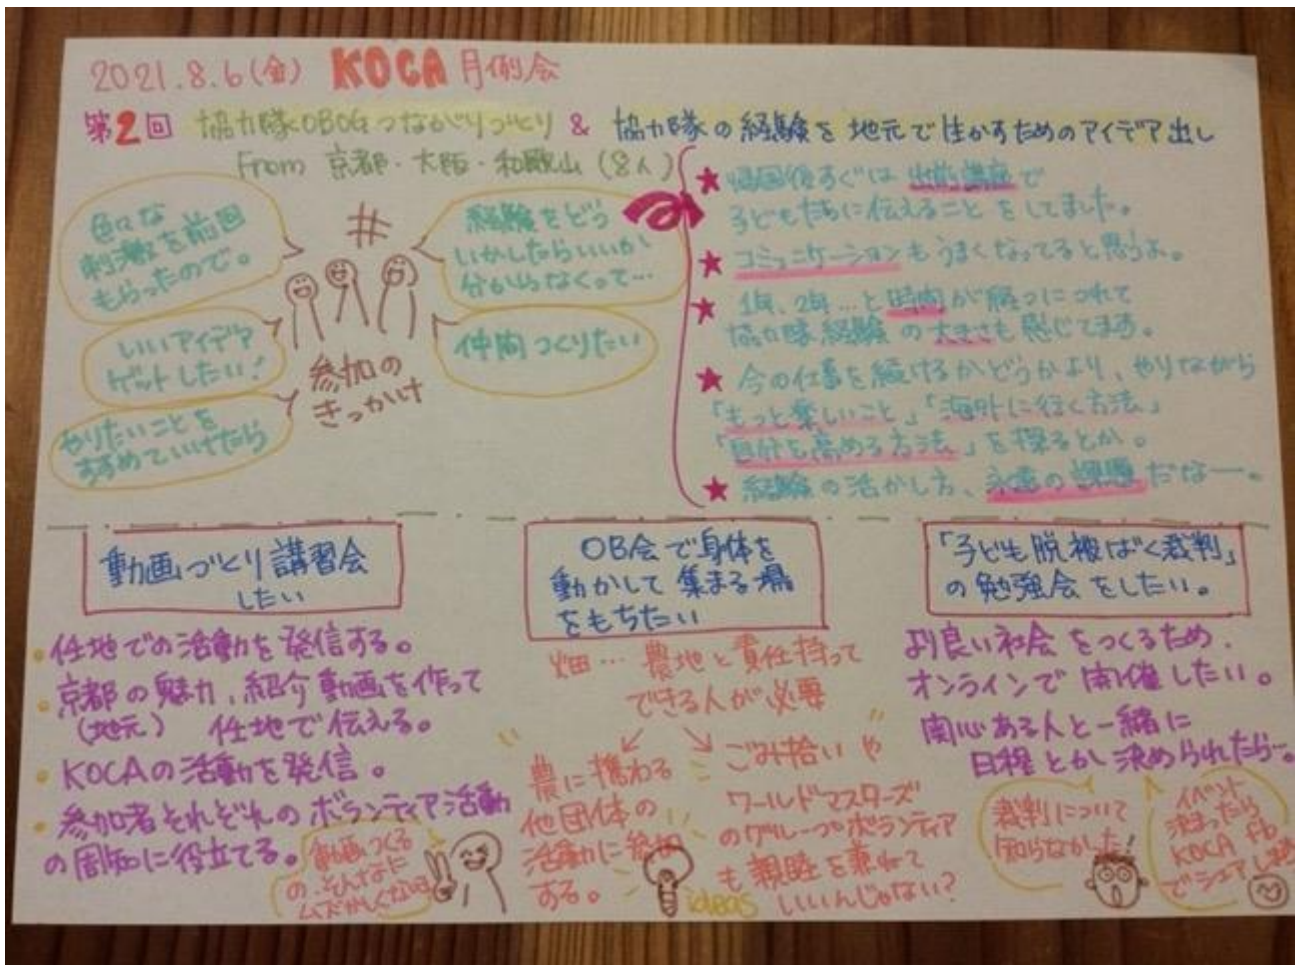 2021.8.6(金) KOCA 月例会
第2回 協力隊OBOGつながりづくり & 協力隊の経験を地元で活かすためのアイデア出し
From 京都・大阪・和歌山(8人)
色々な
刺激を前回
もらったので。
いいアイデア
ゲットしたい!
やりたいことを
すすめていけたら
#
参加の
きっかけ
経験をどう
いかしたらいいか
分からなくって…
仲間つくりたい
★ 帰国後すぐは出前講座で
子どもたちに伝えることをしてました。
★ コミュニケーションもうまくなってると思うよ。
★ 1年、2年…と時間が経つにつれて
協力隊経験の大きさも感じてます。
★ 今の仕事を続けるかどうかより、やりながら
「もっと楽しいこと」「海外に行く方法」
「自分を高める方法」を探るとか。
★ 経験の活かし方、永遠の課題だなー。
動画づくり講習会
したい
・任地での活動を発信する。
・京都の魅力、紹介動画を作って
(地元) 任地で伝える。
・KOCAの活動を発信。
・参加者それぞれのボランティア活動
の周知に役立てる。
動画つくる
の、そんなに
ムズかしくないヨ
OB会で身体を
動かして集まる場
をもちたい
畑…農地と責任持って
できる人が必要
農に携わる
他団体の
活動に参加
する。
ごみ拾いや
ワールドマスターズ
のグループボランティア
も親睦を兼ねて
いいんじゃない?
ideas
「子ども脱被ばく裁判」
の勉強会をしたい。
より良い社会をつくるため、
オンラインで開催したい。
関心ある人と一緒に
日程とか決められたら〜。
裁判について
知らなかった
イベント
決まったら
KOCA fb
でシェアします